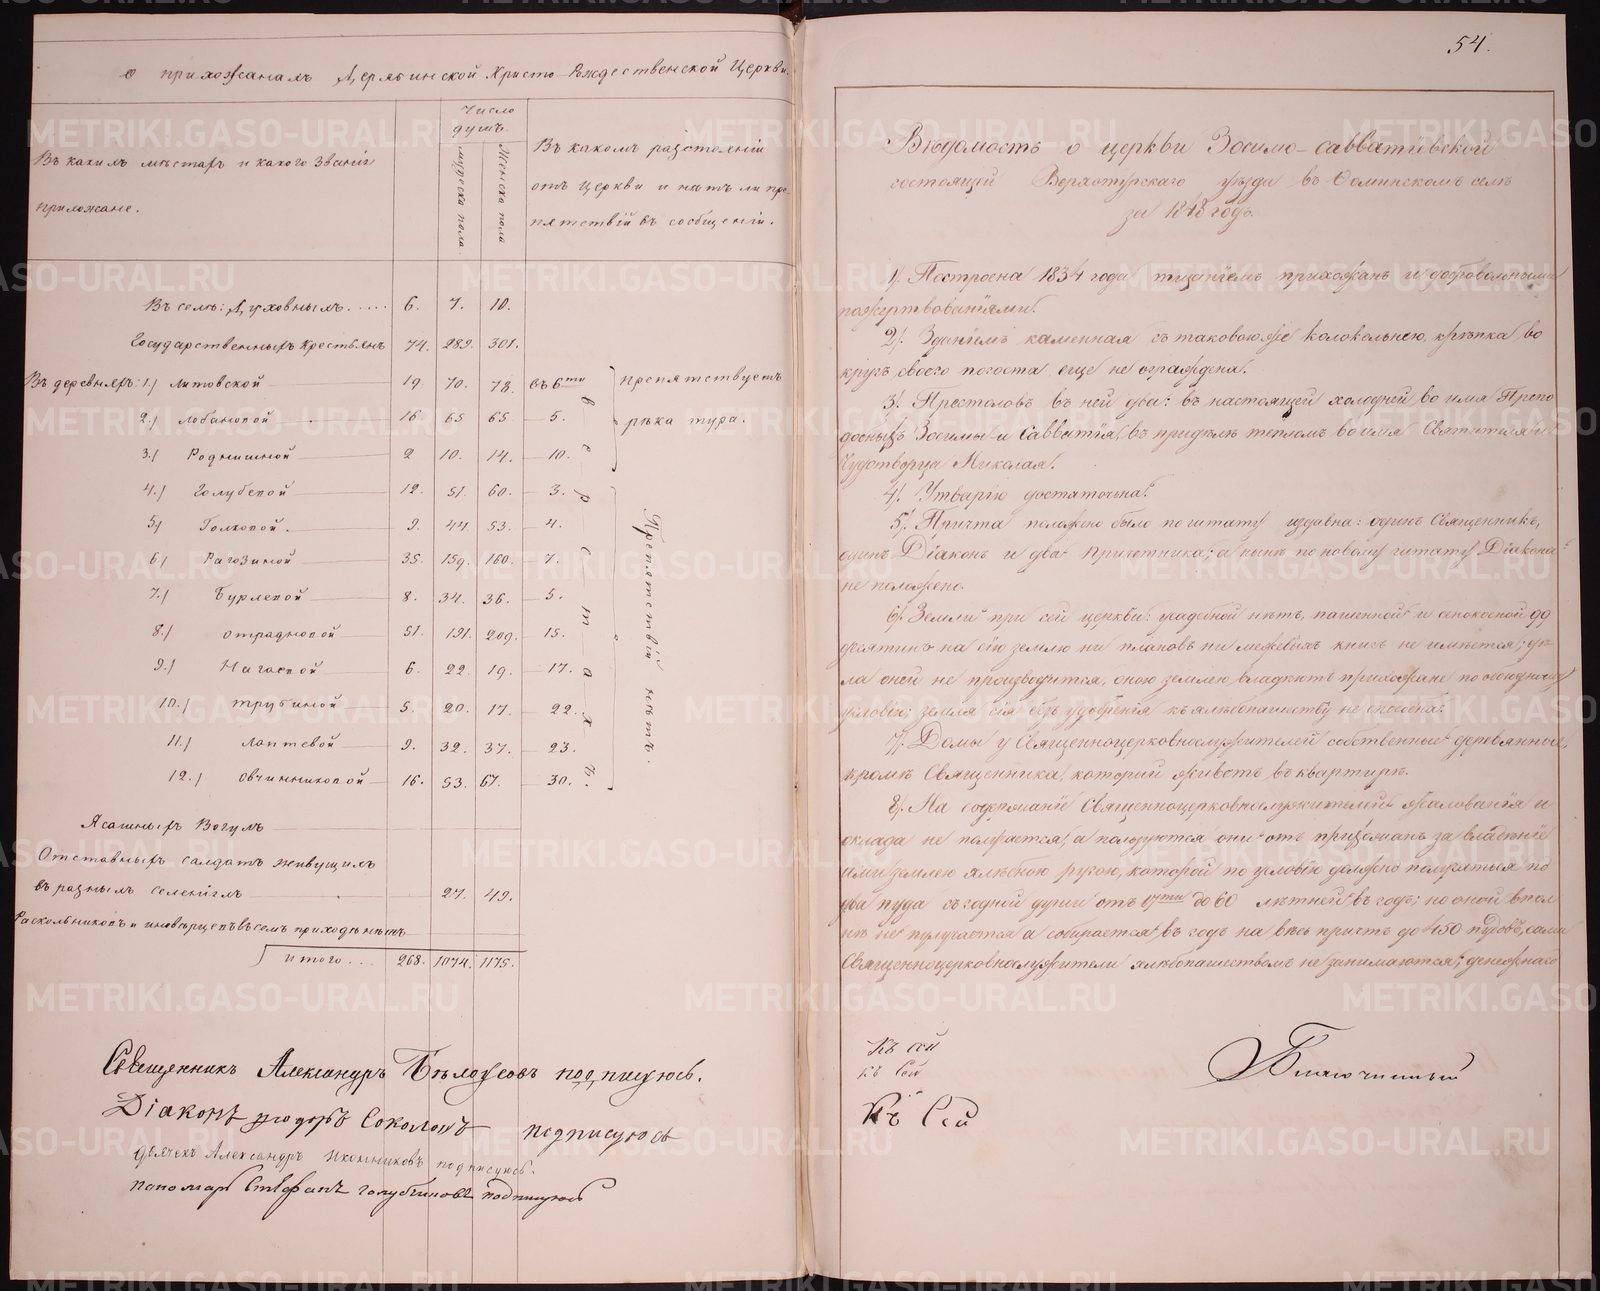 о прихожанахъ Дерябинской Христо-Рождественской Церкви.
Въ какихъ мѣстахъ и какого званія
прихожане.
Число
душъ.
мужеска пола
Женска пола
Въ какомъ разстояніи
отъ Церкви и нѣтъ ли пре
пятствій въ сообщеніи.
Въ селѣ: Духовныхъ..... 6. 7. 10.
Государственныхъ крестьянъ 74. 289. 301.
Въ деревняхъ: 1.) Литовской 19. 70. 78. въ 6ти
2.) Лобановой 16. 65 65 5.
3.) Роднишной 2 10. 14. 10.
4.) Голубевой 12. 51. 60. 3.
5.) Голковой. 9. 44. 53. 4.
6.) Рагозиной 35. 159. 160. 7.
7.) Бурлевой 8. 34. 36. 5.
8.) Отрадновой 51. 191. 209. 15.
9.) Нагаевой 6. 22. 19. 17.
10.) Трубиной 5. 20. 17. 22.
11.) Лаптевой 9. 32. 37. 23.
12.) Овчинниковой 16. 53. 67. 30.
верстахъ.
препятствуетъ
рѣка тура.
Препятствій нѣтъ.
Ясашныхъ Вогулъ
Отставныхъ салдатъ живущихъ
въ разныхъ селеніяхъ 27. 49.
Раскольниковъ и иновѣрцевъ въ семъ приходѣ нѣтъ
итого... 268. 1074. 1175.
Священникъ Александръ Бѣлоусовъ подписуюсь.
Діаконъ Ѳеодоръ Соколовъ подписуюсь
дьячекъ Александръ Иконниковъ подписуюсь.
пономарь Стефанъ голубчиковъ подписуюсь
54.
Вѣдомость о церкви Зосимо-савватіевской
состоящей Верхотурскаго уѣзда въ Фоминскомъ селѣ
за 1848 годъ.
1). Построена 1834 года тщаніемъ прихожанъ и добровольными
пожертвованіями.
2). Зданіемъ каменная съ таковою же колокольнею, крѣпка, во
кругъ своего погоста еще не ограждена.
3). Престоловъ въ ней два: въ настоящей холодней, во имя Препо
добныхъ Зосимы и Савватія, въ придѣлѣ тепломъ во имя Святителя и
Чудотворца Николая.
4). Утварію достаточна.
5). Причта положено было по штату издавна: одинъ Священникъ,
одинъ Діаконъ и два причетника; а нынѣ по новому штату Діакона
не положено.
6). Земли при сей церкви: усадебной нѣтъ, пашенной и сѣнокосной 99
десятинъ на сію землю ни плановъ ни межевыхъ книгъ не имѣется; дѣ
ла о ней не производится, оною землею владѣютъ прихожане по обоюдному
условію; земля сія безъ удобренія къ хлѣбопашеству не способна.
7). Домы у Священноцерковнослужителей собственные деревянные,
кромѣ Священника, который живетъ въ квартирѣ.
8). На содержаніе Священноцерковнослужителей жалованія и
оклада не получается, а пользуются они отъ прихожанъ за владѣніе
ими землею хлѣбною ругою, которой по условію должно получаться по
два пуда съ годной души отъ 17ти до 60 лѣтней въ годъ; но оной впол
нѣ не получается а собирается въ годъ на весь причтъ до 450 пудовъ, сами
Священноцерковнослужители хлѣбопашествомъ не занимаются; денежнаго
Къ сей
къ Сей
Къ Сей
Благочинный